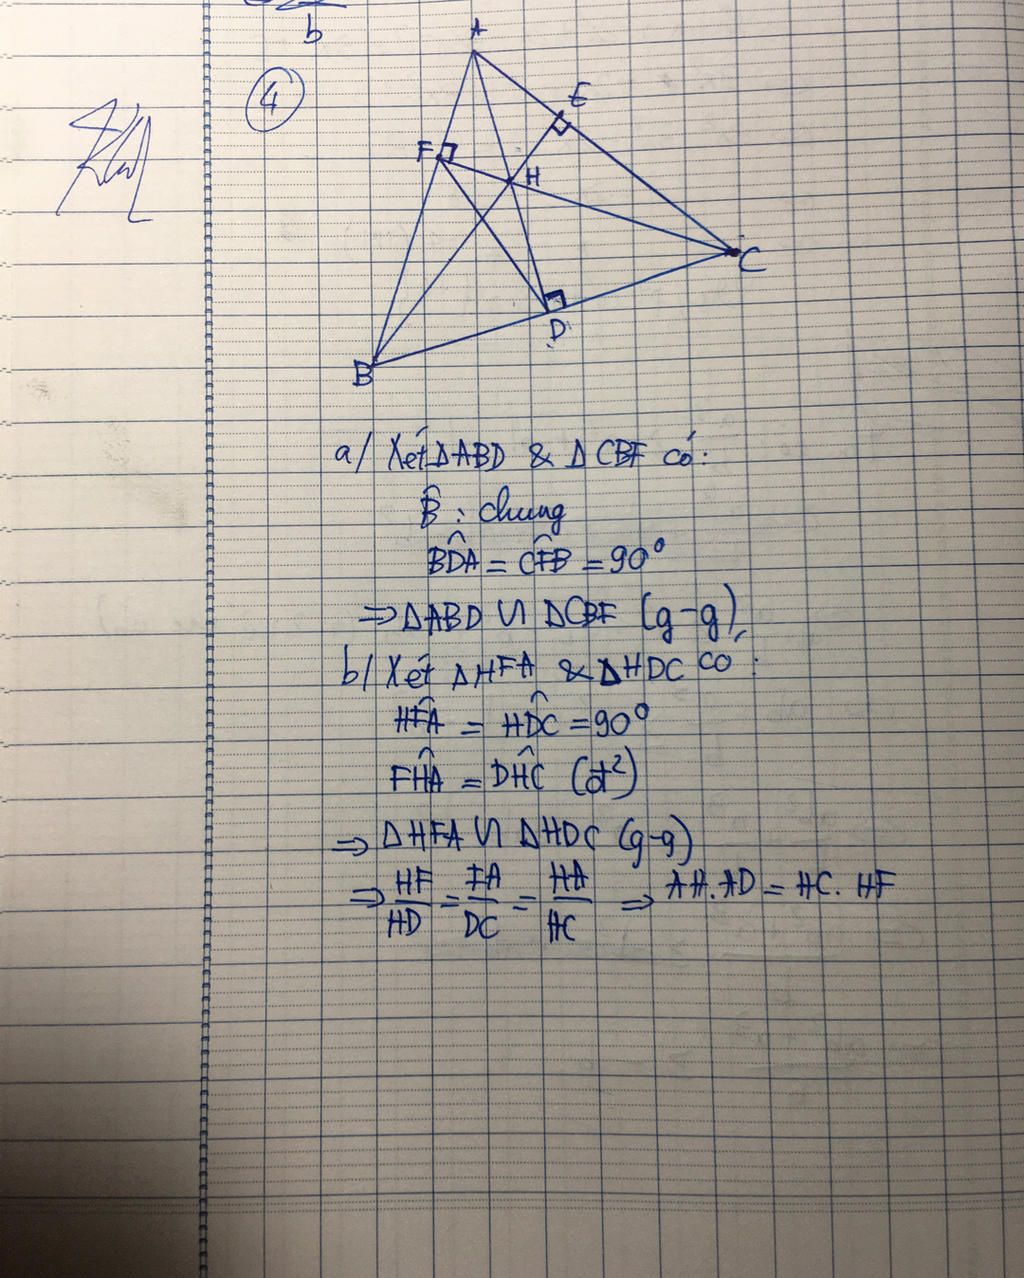 b
4
A
E
F
H
C
D
B
a/ Xét ΔABD & ΔCBF có:
B̂ : chung
BD̂A = CF̂B = 90°
⇒ ΔABD ᔕ ΔCBF (g-g)
b/ Xét ΔHFA & ΔHDC có:
HF̂A = HD̂C = 90°
FĤA = DĤC (đ²)
⇒ ΔHFA ᔕ ΔHDC (g-g)
⇒ HF/HD = FA/DC = HA/HC ⇒ AH.AD = HC.HF